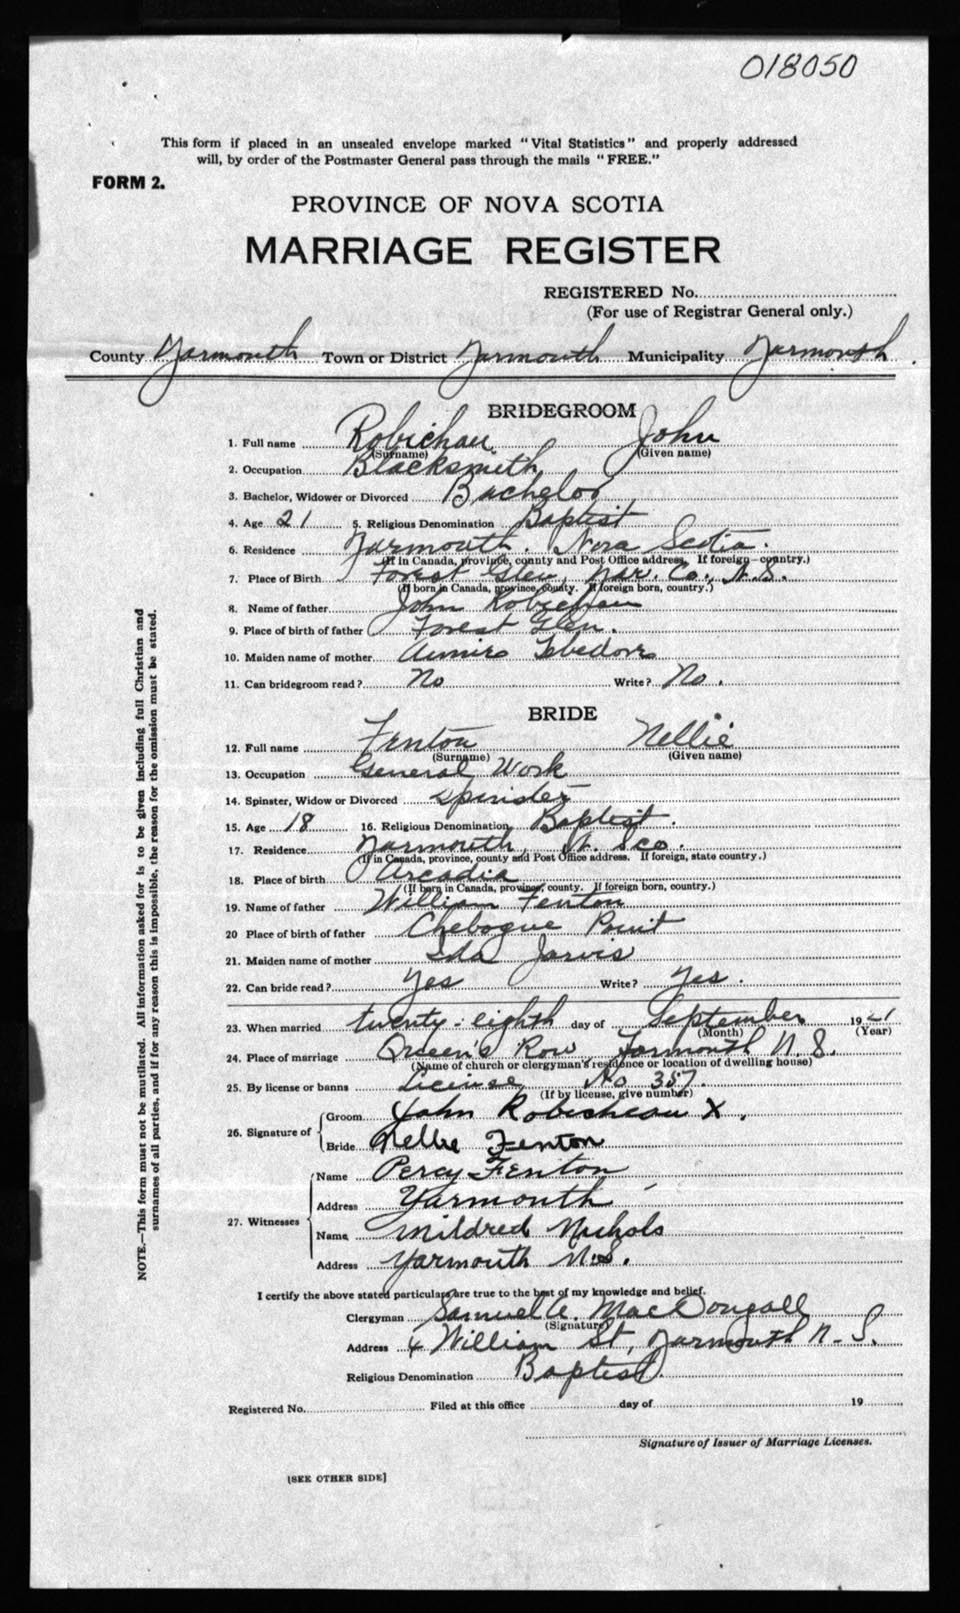 018050
This form if placed in an unsealed envelope marked "Vital Statistics" and properly addressed
will, by order of the Postmaster General pass through the mails "FREE."
FORM 2.
PROVINCE OF NOVA SCOTIA
MARRIAGE REGISTER
REGISTERED No.
(For use of Registrar General only.)
County Yarmouth Town or District Yarmouth Municipality Yarmouth
BRIDEGROOM
1. Full name Robichau John
(Surname) (Given name)
2. Occupation Blacksmith
3. Bachelor, Widower or Divorced Bachelor
4. Age 21 5. Religious Denomination Baptist
6. Residence Yarmouth. Nova Scotia.
(If in Canada, province, county and Post Office address. If foreign—country.)
7. Place of Birth Forest Glen, Yar. Co., N.S.
(If born in Canada, province, county. If foreign born, country.)
8. Name of father John Robichau
9. Place of birth of father Forest Glen.
10. Maiden name of mother
11. Can bridegroom read? No Write? No.
BRIDE
12. Full name Fenton Nellie
(Surname) (Given name)
13. Occupation General Work
14. Spinster, Widow or Divorced Spinster
15. Age 18 16. Religious Denomination Baptist.
17. Residence Yarmouth, N. Sco.
(If in Canada, province, county and Post Office address. If foreign, state country.)
18. Place of birth Arcadia
(If born in Canada, province, county. If foreign born, country.)
19. Name of father William Fenton
20 Place of birth of father Chebogue Point
21. Maiden name of mother Ida Jarvis
22. Can bride read? Yes Write? Yes.
23. When married twenty-eighth day of September 1921
(Month) (Year)
24. Place of marriage Queen's Row Yarmouth N.S.
(Name of church or clergyman's residence or location of dwelling house)
25. By license or banns License No 357.
(If by license, give number)
26. Signature of Groom John Robicheau X.
Bride Nellie Fenton
27. Witnesses Name Percy Fenton
Address Yarmouth
Name Mildred Nichols
Address Yarmouth N.S.
I certify the above stated particulars are true to the best of my knowledge and belief.
Clergyman Samuel A. MacDougall
(Signature)
Address 4 William St, Yarmouth N.S.
Religious Denomination Baptist.
Registered No. Filed at this office day of 19
Signature of Issuer of Marriage Licenses.
[SEE OTHER SIDE]
NOTE.—This form must not be mutilated. All information asked for is to be given including full Christian and
surnames of all parties, and if for any reason this is impossible, the reason for the omission must be stated.